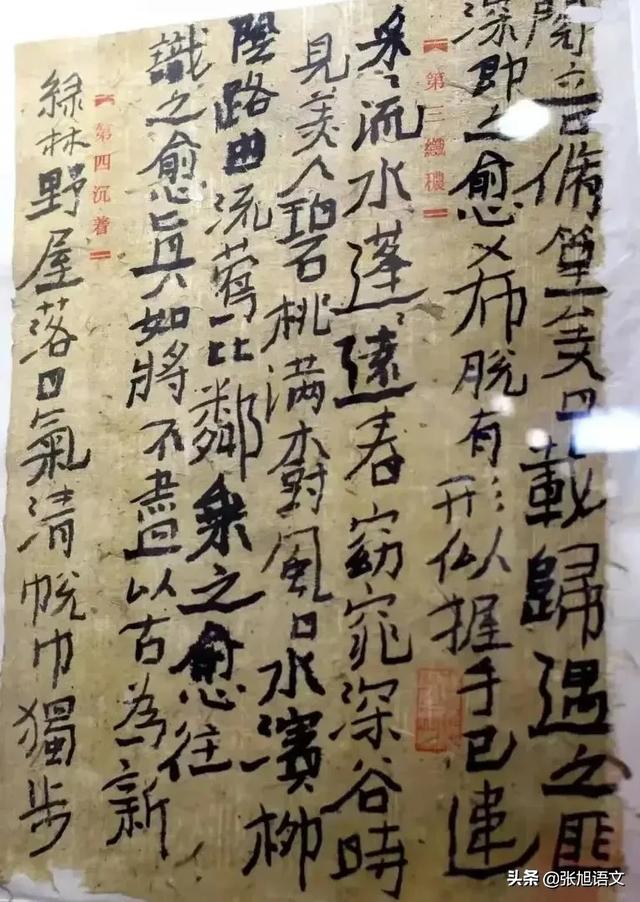 閱音脩篁美曰載歸遇之匪
深即之愈希脫有形似握手已違
【第三纖穠】
采〻流水蓬〻遠春窈窕深谷時
見美人碧桃满樹風日水濱柳
陰路曲流莺比鄰乘之愈往
識之愈真如將不盡以古為新
【第四沉着】
綠林野屋落日氣清帨巾獨步
头条 @张旭语文